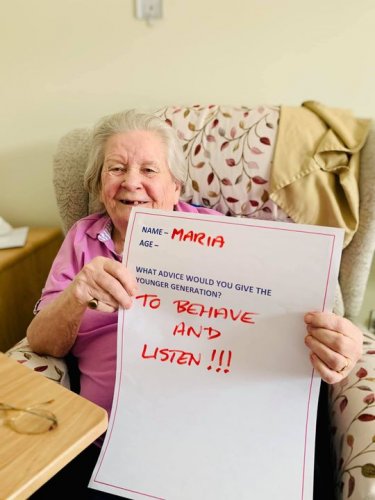 NAME – MARIA
AGE –
WHAT ADVICE WOULD YOU GIVE THE
YOUNGER GENERATION?
TO BEHAVE
AND
LISTEN!!!